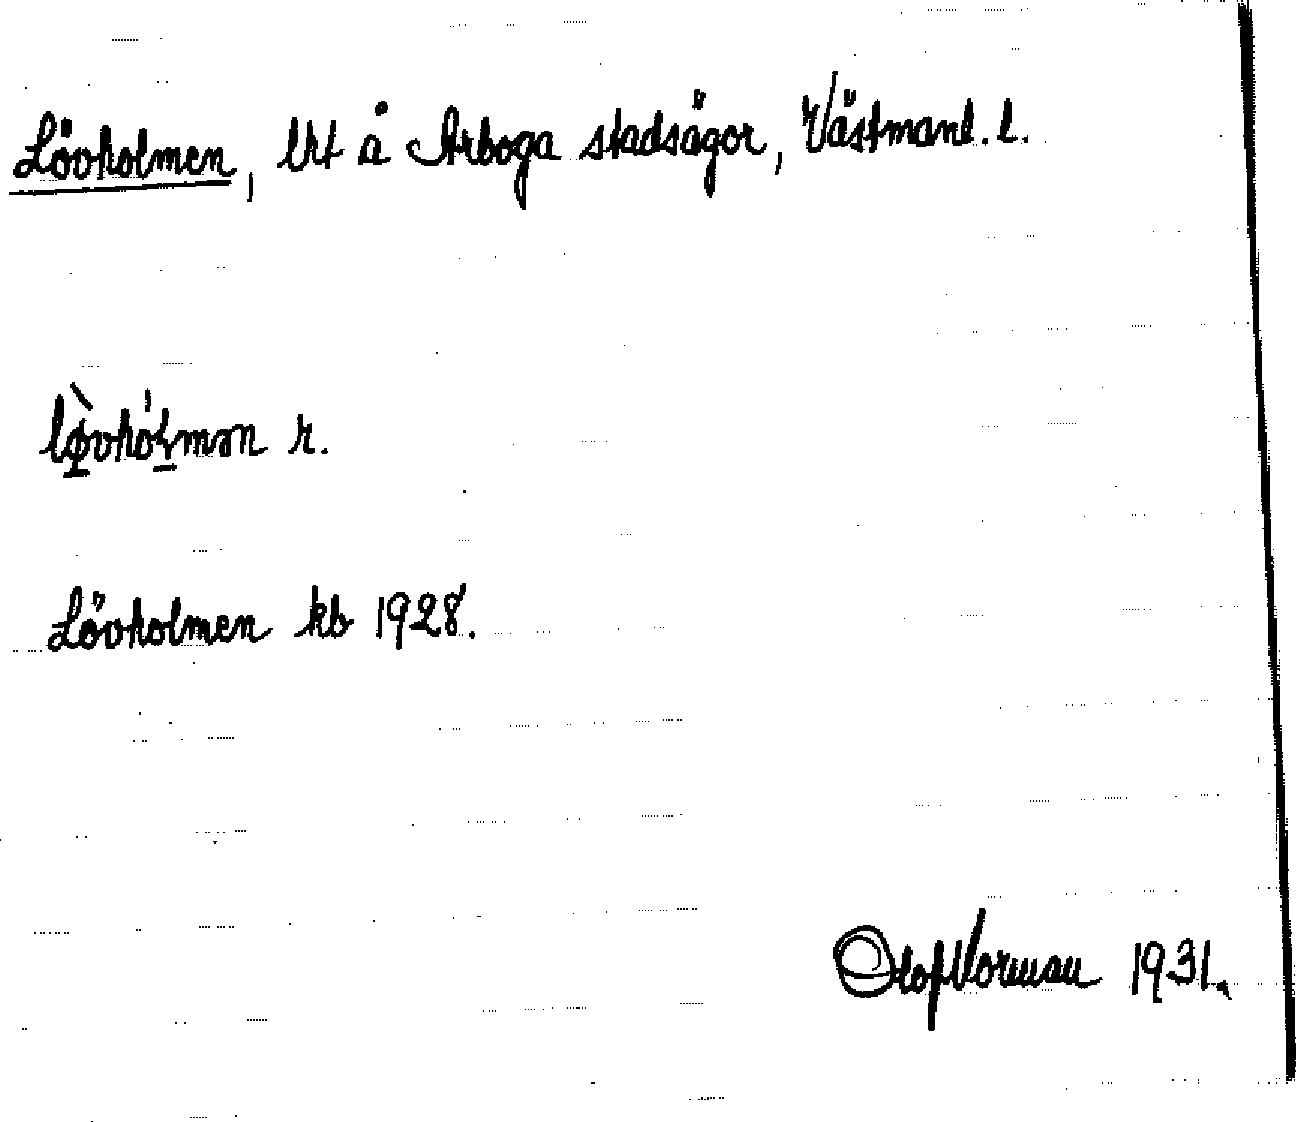 Lövholmen, lht å Arboga stadsägor, Västmanl. l.
lø̀vhól̠mən r.
Lövholmen kb 1928.
Olof Vorman 1931.